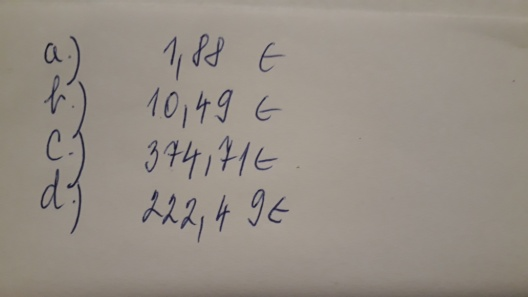 a.) 1,88 €
b.) 10,49 €
c.) 374,71€
d.) 222,49€